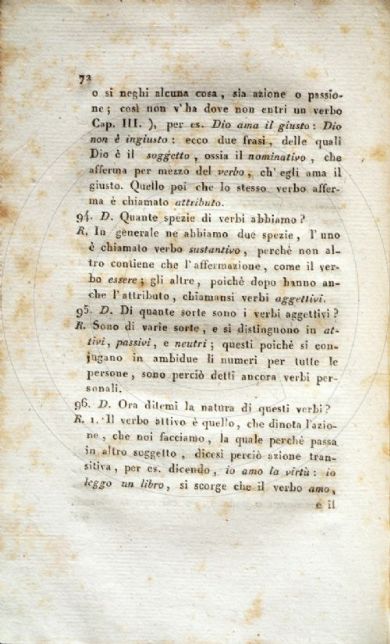 72
o si neghi alcuna cosa, sia azione o passio-
ne; così non v'ha dove non entri un verbo
Cap. III.), per es. Dio ama il giusto: Dio
non è ingiusto: ecco due frasi, delle quali
Dio è il soggetto, ossia il nominativo, che
afferma per mezzo del verbo, ch'egli ama il
giusto. Quello poi che lo stesso verbo affer-
ma è chiamato attributo.
94. D. Quante spezie di verbi abbiamo?
R. In generale ne abbiamo due spezie, l'uno
è chiamato verbo sustantivo, perchè non al-
tro contiene che l'affermazione, come il ver-
bo essere; gli altre, poichè dopo hanno an-
che l'attributo, chiamansi verbi aggettivi.
95. D. Di quante sorte sono i verbi aggettivi?
R. Sono di varie sorte, e si distinguono in at-
tivi, passivi, e neutri; questi poichè si con-
jugano in ambidue li numeri per tutte le
persone, sono perciò detti ancora verbi per-
sonali.
96. D. Ora ditemi la natura di questi verbi?
R. 1. Il verbo attivo è quello, che dinota l'azio-
ne, che noi facciamo, la quale perchè passa
in altro soggetto, dicesi perciò azione tran-
sitiva, per es. dicendo, io amo la virtù: io
leggo un libro, si scorge che il verbo amo,
e il